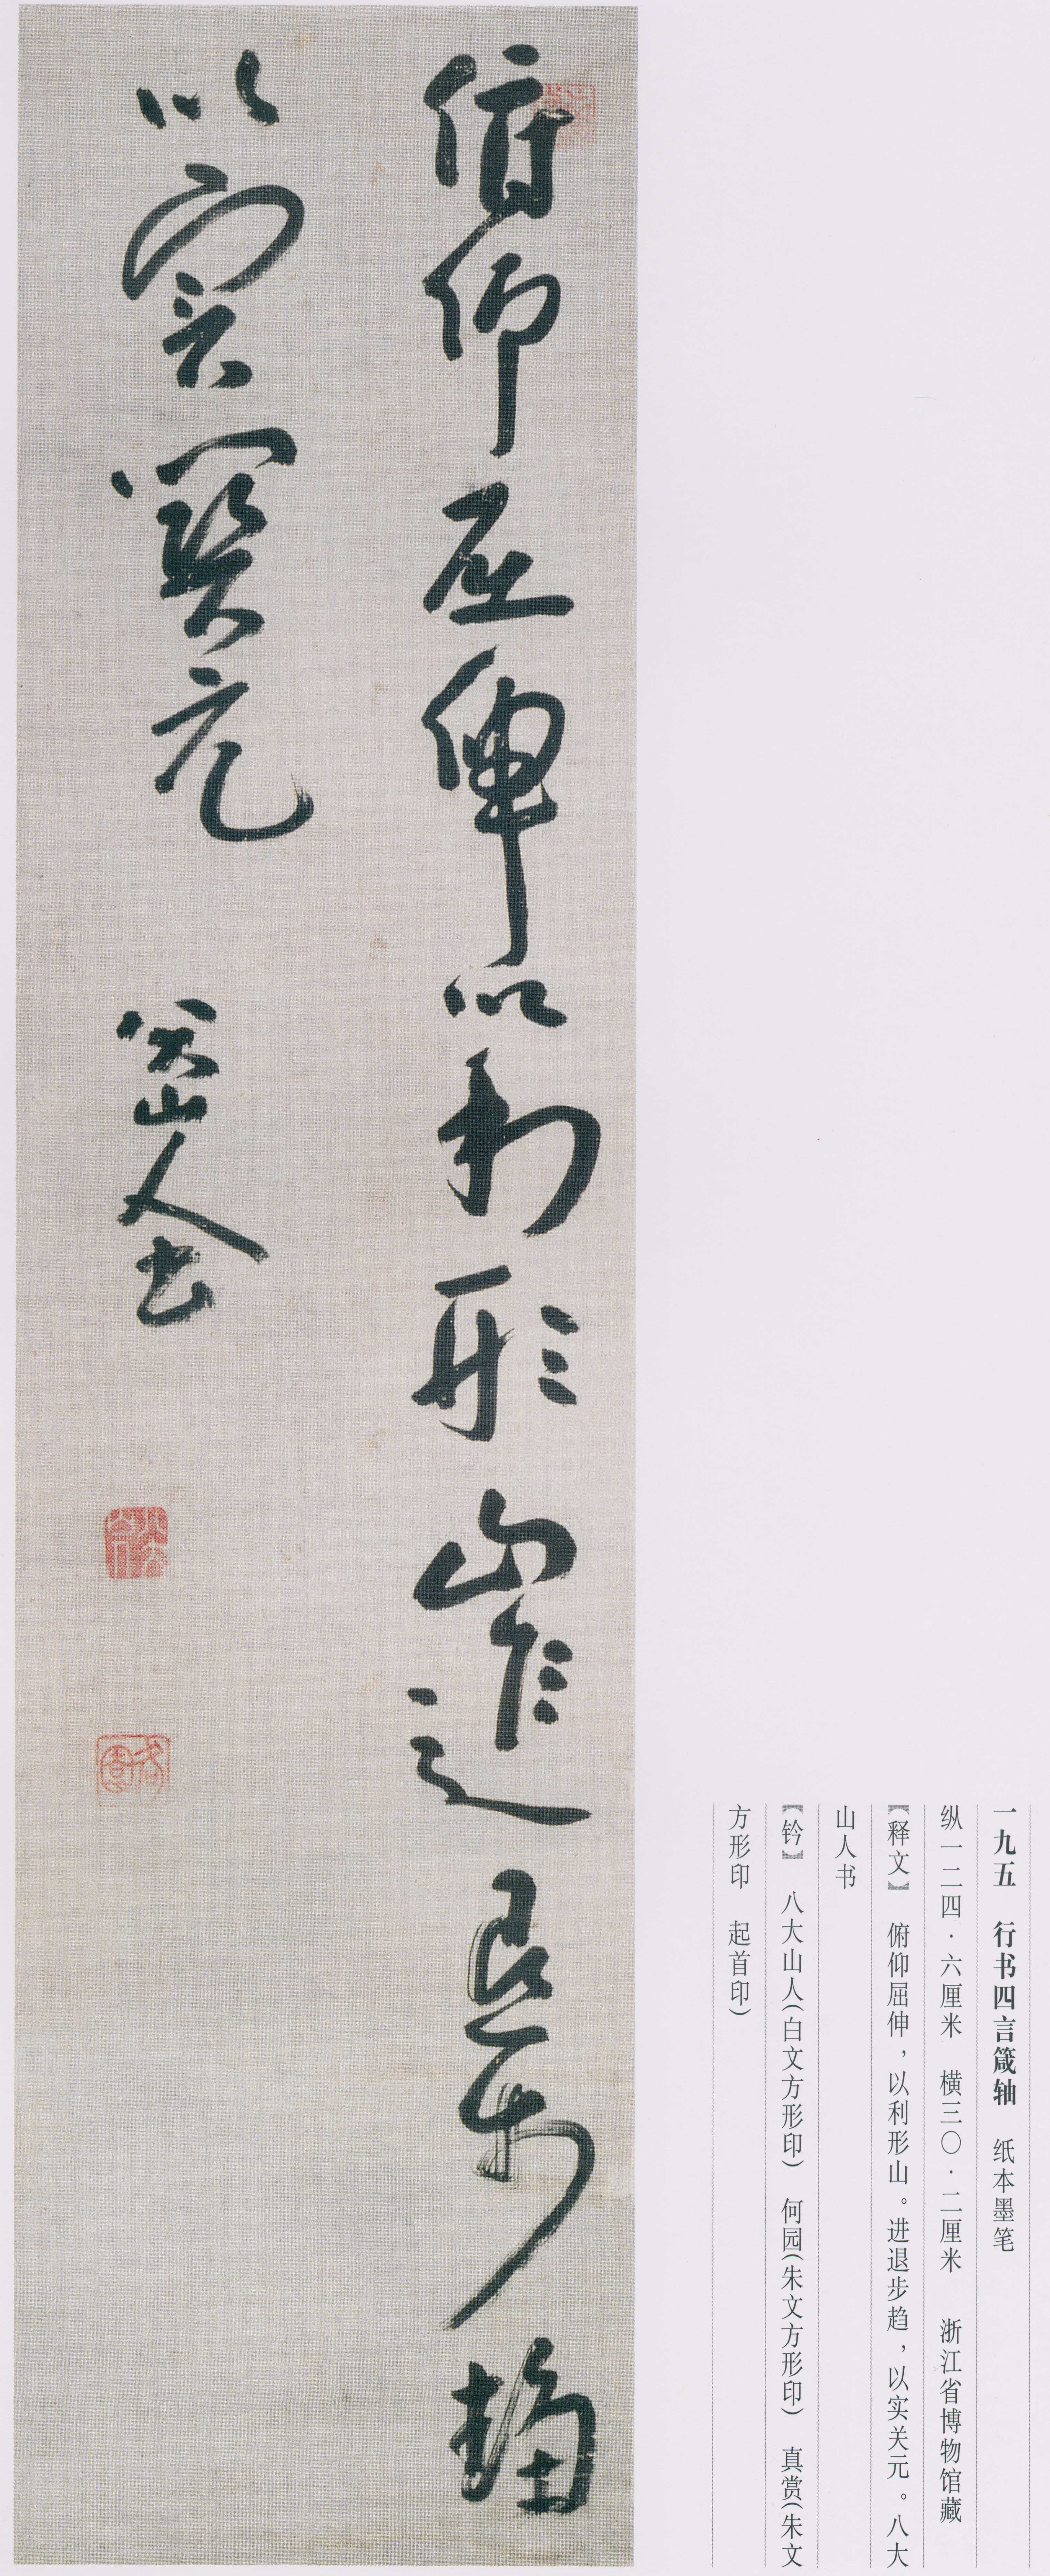 一九五　行书四言箴轴　纸本墨笔
纵一二四·六厘米　横三〇·二厘米　浙江省博物馆藏
【释文】　俯仰屈伸，以利形山。进退步趋，以实关元。八大
山人书
【钤】　八大山人（白文方形印）　何园（朱文方形印）　真赏（朱文
方形印　起首印）
俯仰屈伸以利形山進退步趨
以實關元　八大山人書
八大山人
何園